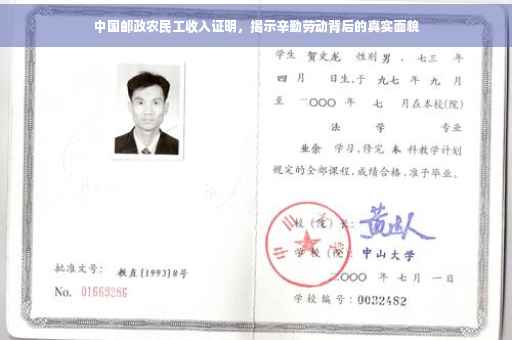 中国邮政农民工收入证明，揭示辛勤劳动背后的真实面貌
学生 贺文龙 性别 男 、七三 年
四 月 日生,于 九七 年 九 月
至 二〇〇〇 年 七 月在本校(院)
法 学 专业
业余 学习,修完 本 科教学计划
规定的全部课程,成绩合格,准予毕业。
校(院)长:
学校(院): 中山大学
二〇〇〇 年 七 月 一 日
批准文号: 教直[1993]8号
No. 01669286
学校编号: 0032482